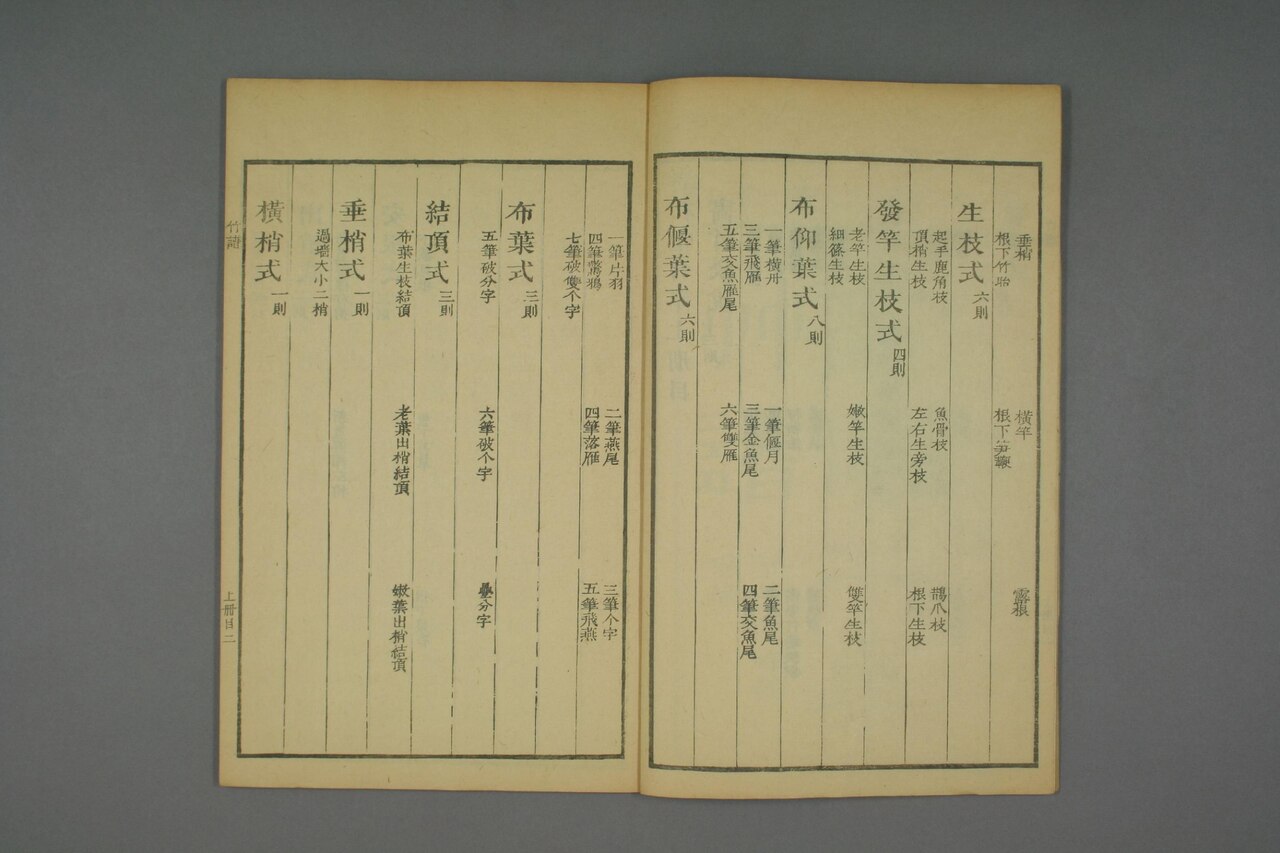 垂稍　橫竿　露根
根下竹胎　根下笋鞭
生枝式 六則
起手鹿角枝　魚骨枝　鵲爪枝
頂梢生枝　左右生旁枝　根下生枝
發竿生枝式 四則
老竿生枝　嫩竿生枝　雙竿生枝
細篠生枝
布仰葉式 八則
一筆橫舟　一筆偃月　二筆魚尾
三筆飛雁　三筆金魚尾　四筆交魚尾
五筆交魚雁尾　六筆雙雁
布偃葉式 六則
一筆片羽　二筆燕尾　三筆个字
四筆驚鴉　四筆落雁　五筆飛燕
七筆破雙个字
布葉式 三則
五筆破分字　六筆破个字　疊分字
結頂式 三則
布葉生枝結頂　老葉出梢結頂　嫩葉出梢結頂
垂梢式 一則
過墻大小二梢
橫梢式 一則
竹譜　上冊目二